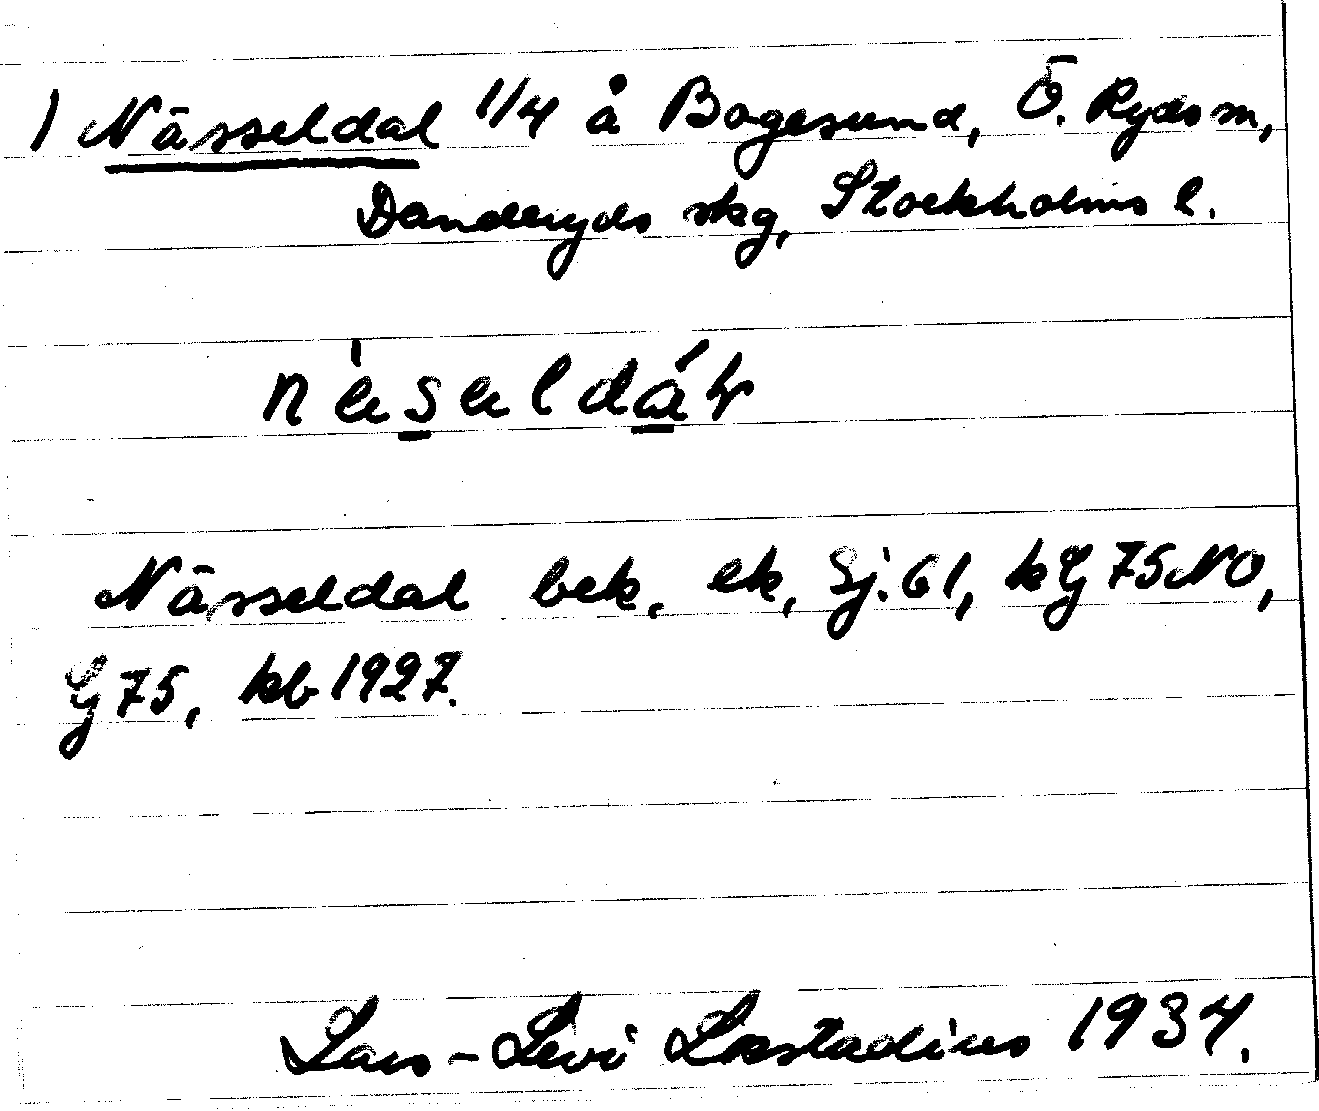 1) Nässeldal 1/4 å Bogesund, Ö. Ryds sn,
Danderyds skg, Stockholms l.
Nässeldal bek. ek, Sj. 61, kG 75 NO,
G 75, kb 1927.
Lars-Levi Læstadius 1934.